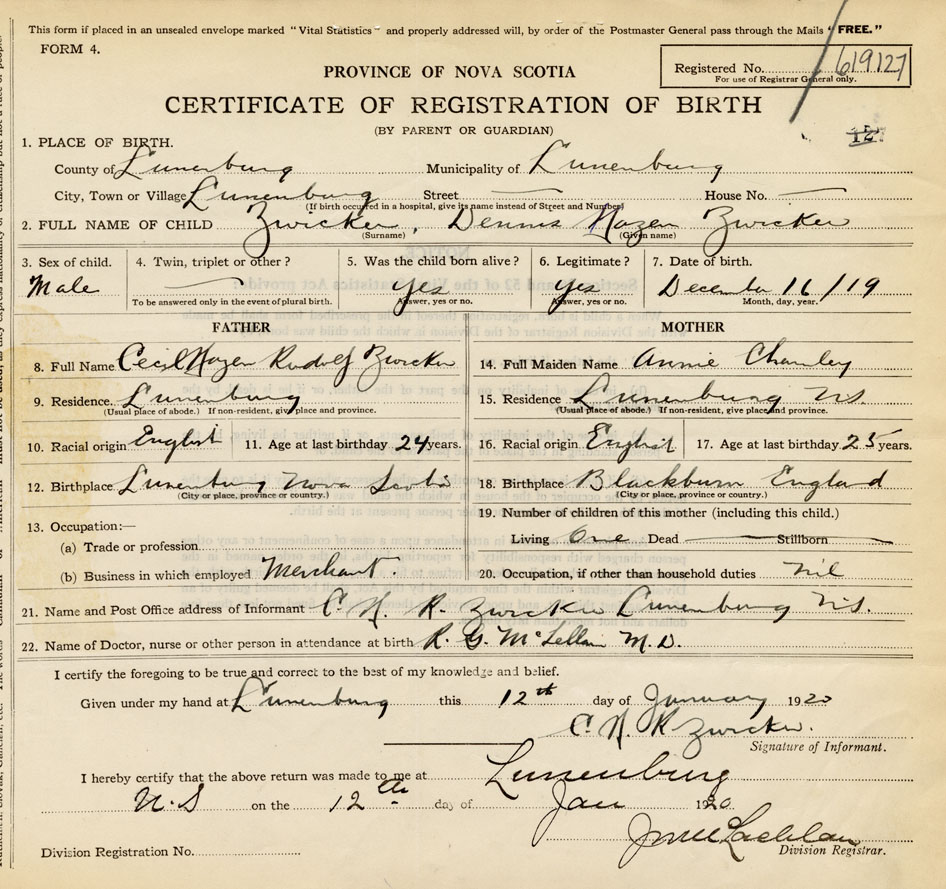 This form if placed in an unsealed envelope marked "Vital Statistics" and properly addressed will, by order of the Postmaster General pass through the Mails "FREE."
FORM 4.
Registered No. 619127
For use of Registrar General only.
PROVINCE OF NOVA SCOTIA
CERTIFICATE OF REGISTRATION OF BIRTH
(BY PARENT OR GUARDIAN)
1. PLACE OF BIRTH.
County of Lunenburg Municipality of Lunenburg
City, Town or Village Lunenburg Street — House No. —
(If birth occurred in a hospital, give its name instead of Street and Number)
2. FULL NAME OF CHILD Zwicker, Dennis Hazen Zwicker
(Surname) (Given name)
3. Sex of child. 4. Twin, triplet or other? 5. Was the child born alive? 6. Legitimate? 7. Date of birth.
Male — Yes Yes December 16/19
To be answered only in the event of plural birth. Answer, yes or no. Answer, yes or no. Month, day, year.
FATHER MOTHER
8. Full Name Cecil Hazen Rudolf Zwicker 14. Full Maiden Name Annie Chamley
9. Residence. Lunenburg 15. Residence Lunenburg N.S.
(Usual place of abode.) If non-resident, give place and province. (Usual place of abode.) If non-resident, give place and province.
10. Racial origin English 11. Age at last birthday 24 years. 16. Racial origin English 17. Age at last birthday 25 years.
12. Birthplace Lunenburg Nova Scotia 18. Birthplace Blackburn England
(City or place, province or country.) (City or place, province or country.)
19. Number of children of this mother (including this child.)
13. Occupation:—
Living One Dead — Stillborn —
(a) Trade or profession
(b) Business in which employed Merchant 20. Occupation, if other than household duties nil
21. Name and Post Office address of Informant C. H. R. Zwicker Lunenburg N.S.
22. Name of Doctor, nurse or other person in attendance at birth R. G. McLellan M.D.
I certify the foregoing to be true and correct to the best of my knowledge and belief.
Given under my hand at Lunenburg this 12th day of January 1920
C. H. R Zwicker.
Signature of Informant.
I hereby certify that the above return was made to me at Lunenburg
N.S on the 12th day of Jan 1920.
Division Registration No. Division Registrar.